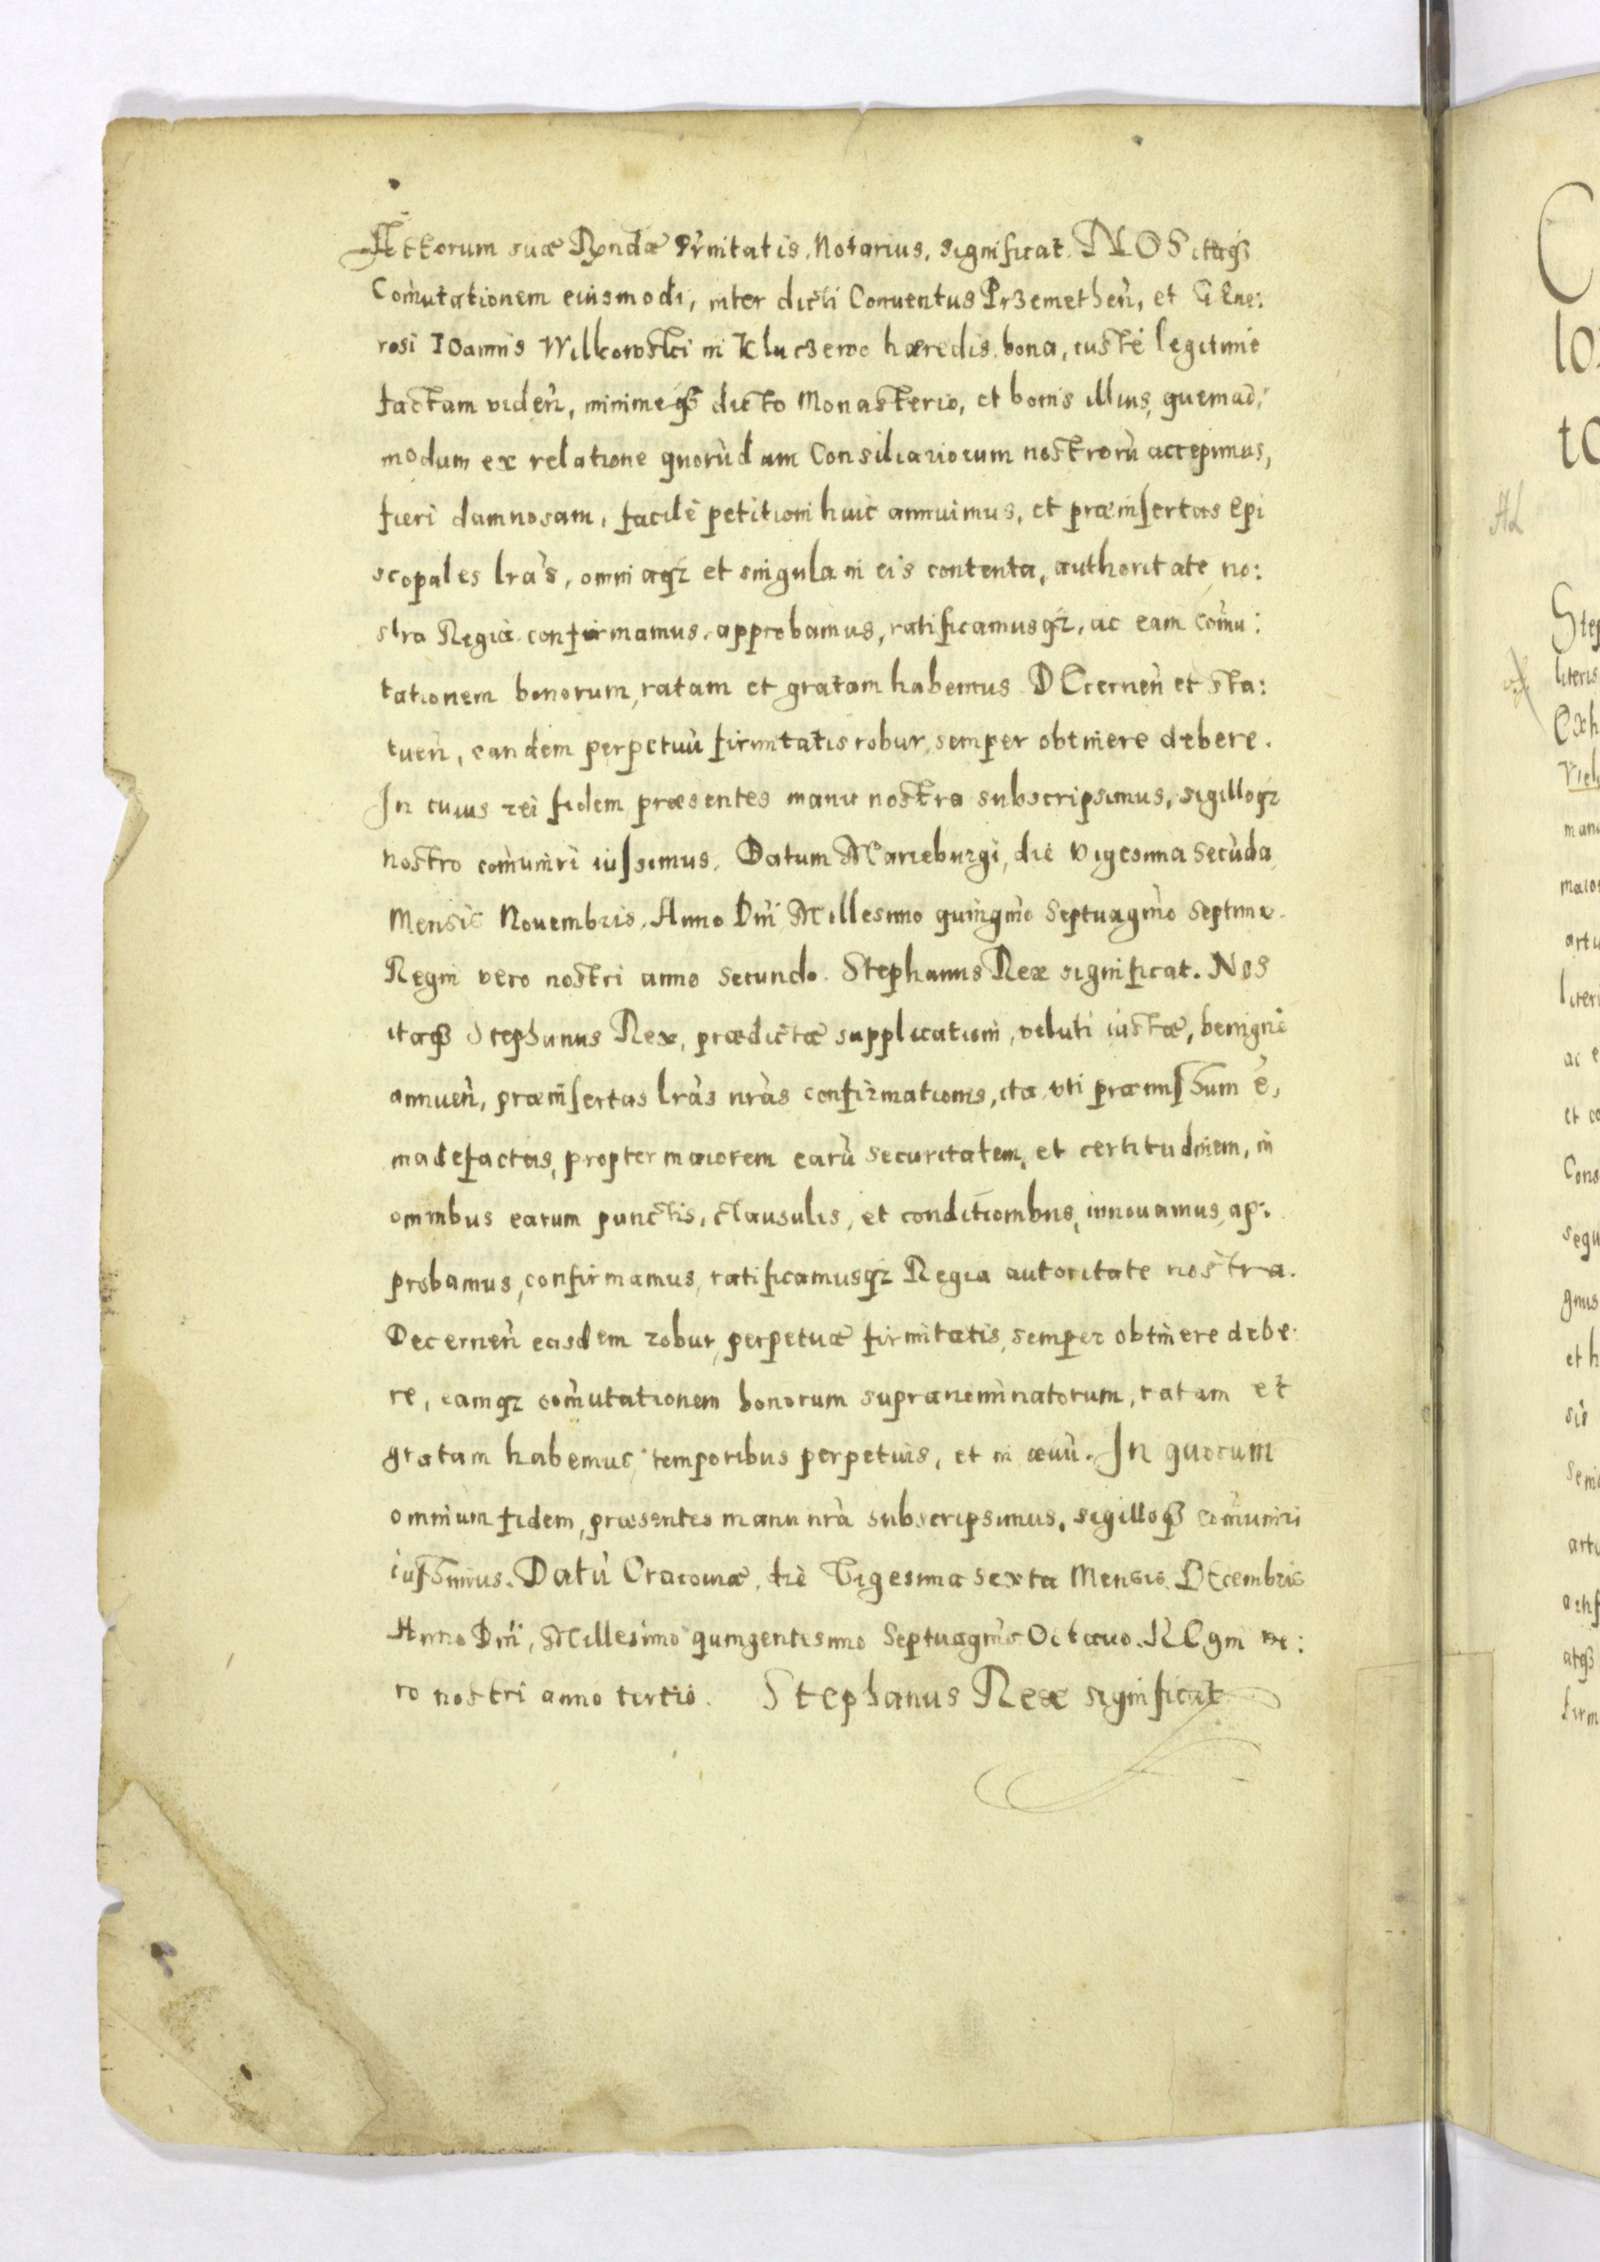 Actorum suæ Rṽndæ Prnitatis. Notarius. significat. NOS itaq3
Com̃utationem eiusmodi, inter dicti Conuentus Przemethen̄, et GEne:
rosi IOannis Wilkowski in Kluczewo hæredis, bona, iuste legitime
factam viden̄, minimeq3 dicto Monasterio, et bonis illius, quemad:
modum ex relatione quorùdam Consiliariorum nostrorù accepimus,
fieri damnosam, facilè petitioni huic annuimus, et præinsertas Epi
scopales lrãs, omniaq3 et singula in eis contenta, authoritate no:
stra Regia. confirmamus. approbamus, ratificamusq3, ac eam com̃u:
tationem bonorum, ratam et gratam habemus DEcernen̄ et sta:
tuen̄, eandem perpetuù firmitatis robur, semper obtinere debere.
In cuius rei fidem præsentes manu nostra subscripsimus, sigilloq3
nostro com̃uniri iussimus. Datum Marieburgi, die vigesima secùda
Mensis Nouembris. Anno Dnĩ Millesimo quingmõ Septuagmõ Septimo.
Regni vero nostri anno secundo. Stephanus Rex significat. Nos
itaq3 Stephanus Rex, prædictæ supplicationi, veluti iustæ, benignè
annuen̄, præinsertas lrãs nrãs confirmationis, ita vti præmissum ẽ,
madefactas, propter maiorem earù securitatem, et certitudinem, in
omnibus earum punctis, clausulis, et conditionibus, innouamus, ap:
probamus, confirmamus, ratificamusq3 Regia autoritate nostra.
Decernen̄ easdem robur perpetuæ firmitatis, semper obtinere debe:
re, eamq3 com̃utationem bonorum supranominatorum, ratam et
gratam habemus temporibus perpetuis, et in æuù. In quorum
omnium fidem, præsentes manu nrã subscripsimus, sigilloq3 com̃uniri
iussimus. Datù Cracouiæ, die Vigesima sexta Mensis DEcembris
Anno Dnĩ, Millesimo quingentesimo Septuagmõ Octauo. REgni ve:
ro nostri anno tertio. Stephanus Rex significat
C
lo
to
AL
Step
literis
Exh
Viel
man
maior
artu
liter
ac e
et co
Cons
sequ
gnus
et h
sio
seni
arti
artif
atq3
firm